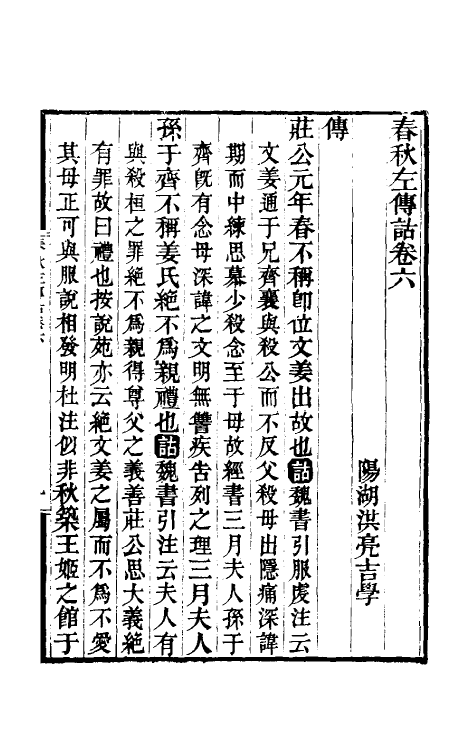 春秋左傳詁卷六
陽湖洪亮吉學
傳
莊公元年春不稱卽位文姜出故也詁魏書引服虔注云
文姜通于兄齊襄與殺公而不反父殺母出隱痛深諱
期而中練思慕少殺念至于母故經書三月夫人孫于
齊旣有念母深諱之文明無讐疾告列之理三月夫人
孫于齊不稱姜氏絶不爲親禮也詁魏書引注云夫人有
與殺桓之罪絶不爲親得尊父之義善莊公思大義絶
有罪故曰禮也按說苑亦云絶文姜之屬而不爲不愛
其母正可與服說相發明杜注似非秋築王姬之館于